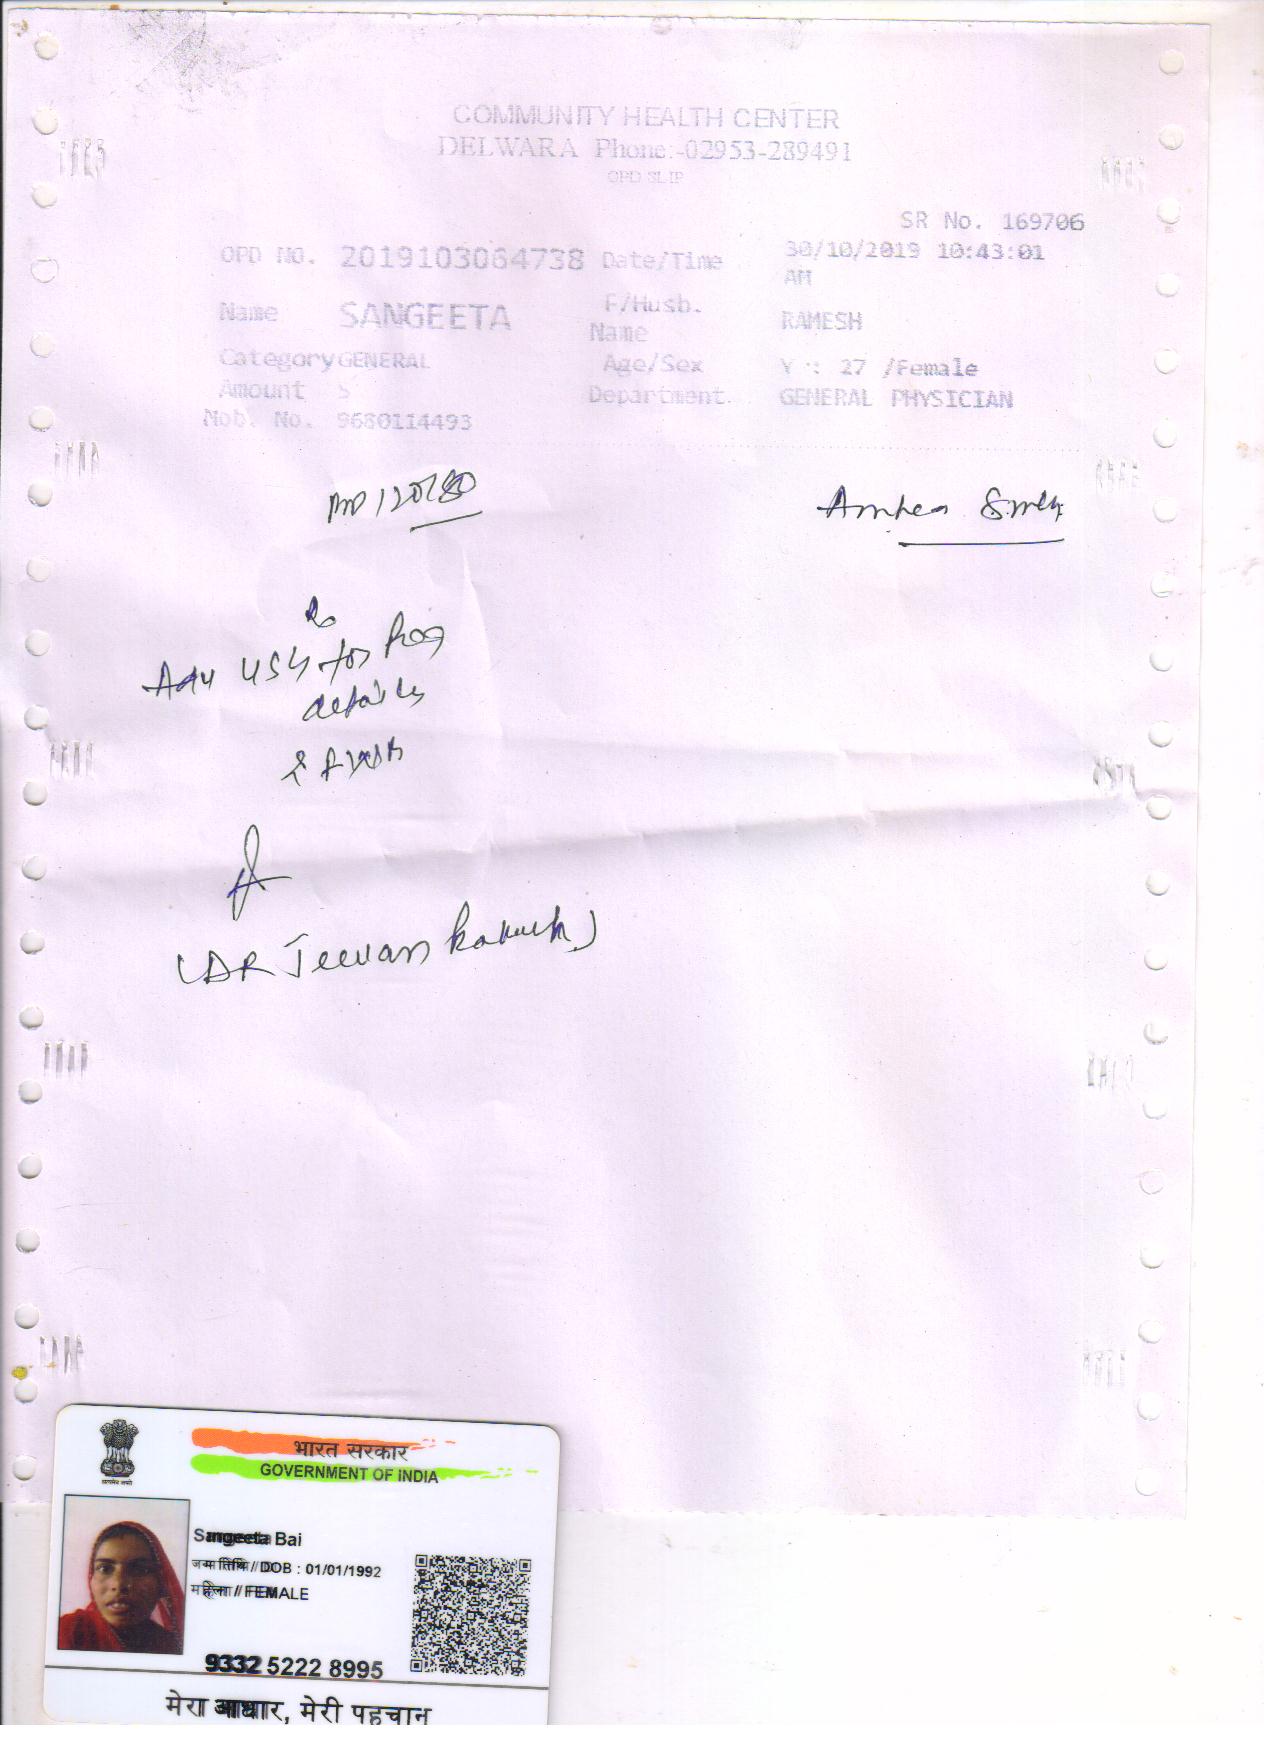 COMMUNITY HEALTH CENTER
DELWARA Phone:-02953-289491
OPD SLIP
SR No. 169706
OPD NO. 2019103064738 Date/Time 30/10/2019 10:43:01 AM
Name SANGEETA F/Husb. Name RAMESH
Category GENERAL Age/Sex Y : 27 /Female
Amount 5 Department. GENERAL PHYSICIAN
Mob. No. 9680114493
Rx
Adv USG for Preg
details
(DR Jeevan
भारत सरकार
GOVERNMENT OF INDIA
Sangeeta Bai
जन्म तिथि / DOB : 01/01/1992
महिला / FEMALE
9332 5222 8995
मेरा आधार, मेरी पहचान